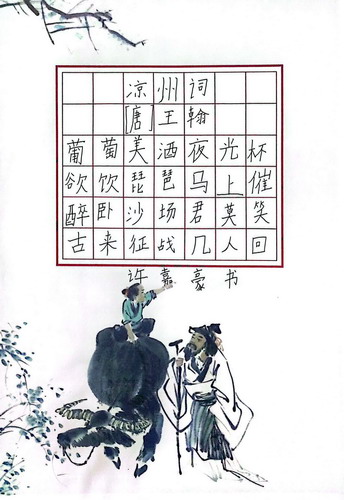 凉州词
[唐]王翰
葡萄美酒夜光杯
欲饮琵琶马上催
醉卧沙场君莫笑
古来征战几人回
许嘉豪书